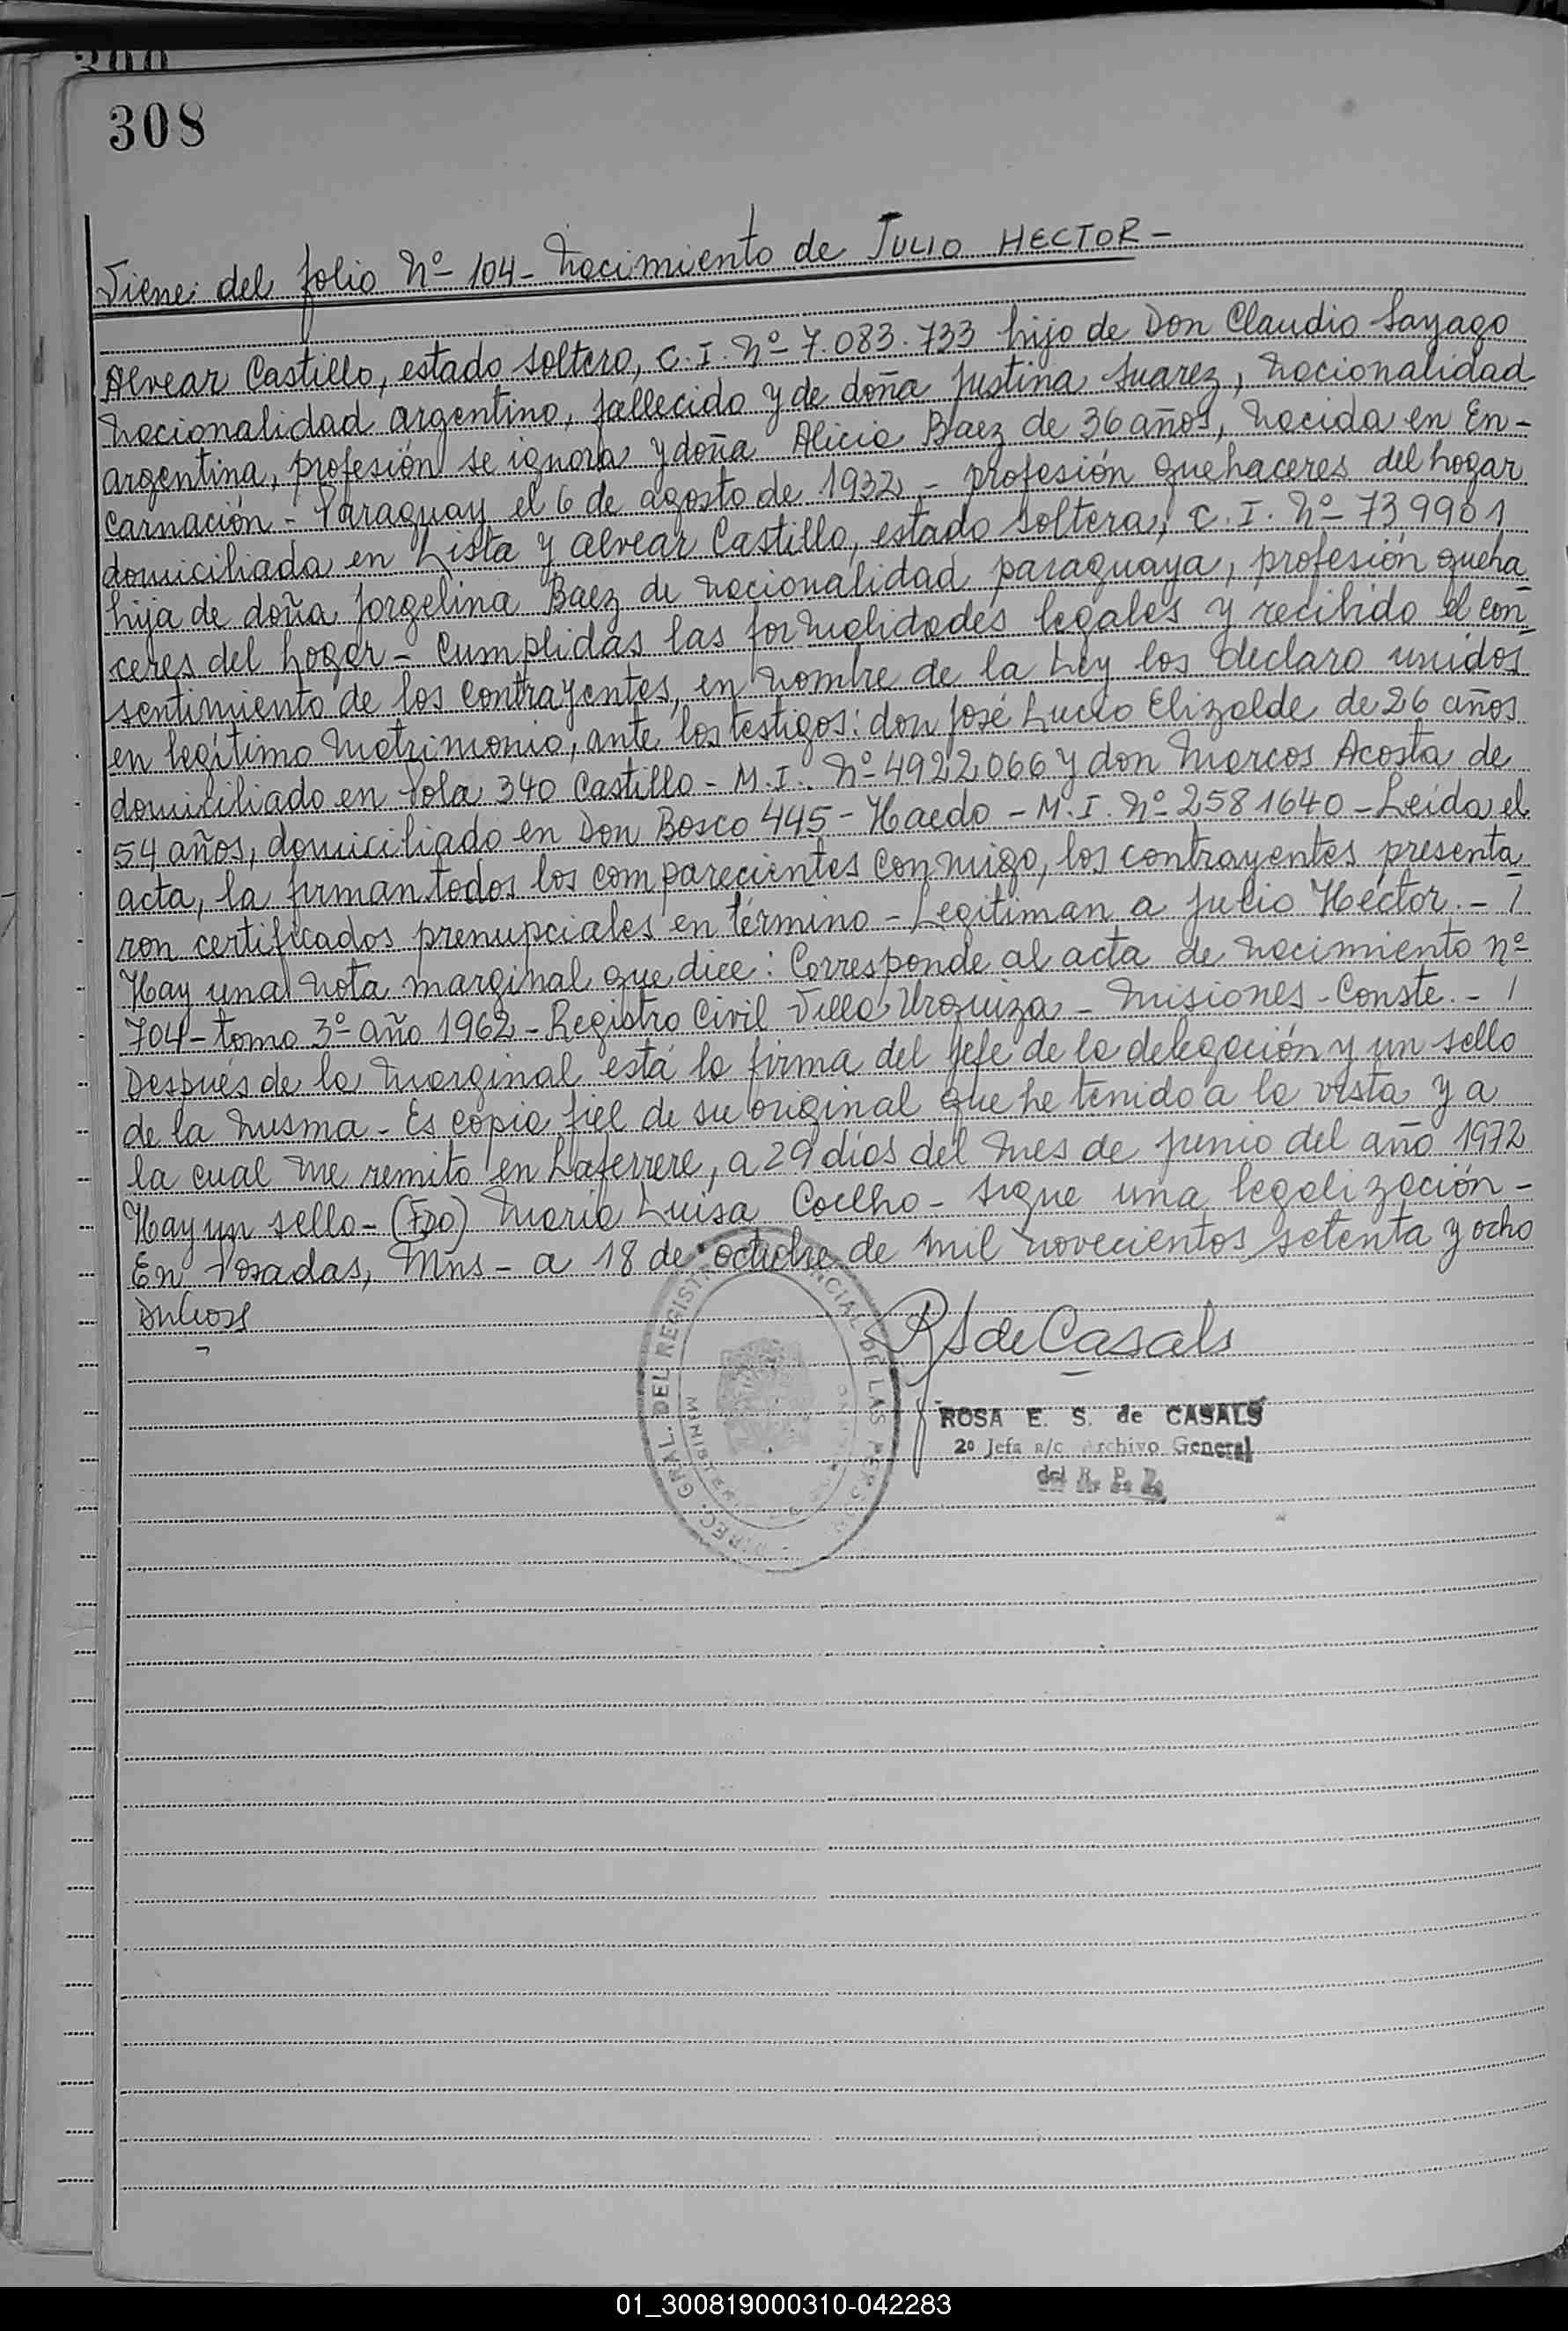 308
Viene del folio Nº 104 - Nacimiento de JULIO HECTOR -
Alvear Castillo, estado soltero, C.I. Nº 7.083.733 hijo de Don Claudio Sayago
nacionalidad argentino, fallecido y de doña Justina Suarez, nacionalidad
argentina, profesión se ignora y doña Alicia Baez de 36 años, nacida en En-
carnación - Paraguay el 6 de agosto de 1932 - profesión quehaceres del hogar
domiciliada en Lista y Alvear Castillo, estado soltera, C.I. Nº 739901
hija de doña Jorgelina Baez de nacionalidad paraguaya, profesión queha
ceres del hogar - Cumplidas las formalidades legales y recibido el con-
sentimiento de los contrayentes, en nombre de la Ley los declaro unidos
en legítimo matrimonio, ante los testigos: don José Lucio Elizalde de 26 años
domiciliado en Pola 340 Castillo - M.I. Nº 4922066 y don Marcos Acosta de
54 años, domiciliado en Don Bosco 445 - Haedo - M.I. Nº 2581640 - Leida el
acta, la firman todos los comparecientes conmigo, los contrayentes presenta
ron certificados prenupciales en término - Legitiman a Julio Héctor. - /
Hay una nota marginal que dice: Corresponde al acta de nacimiento nº
704 - tomo 3º año 1962 - Registro Civil Villa Urquiza - Misiones - Conste. - /
Después de la marginal está la firma del Jefe de la delegación y un sello
de la misma - Es copia fiel de su original que he tenido a la vista y a
la cual me remito en Laferrere, a 29 días del mes de junio del año 1972
Hay un sello - (FDO) María Luisa Coelho - Sigue una legalización -
En Posadas, Mns - a 18 de octubre de mil novecientos setenta y ocho
R S de Casals
ROSA E. S. de CASALS
2º Jefa a/c Archivo General
del R. P. P.
GRAL. DEL REGISTRO PROVINCIAL DE LAS PERSONAS
01_300819000310-042283